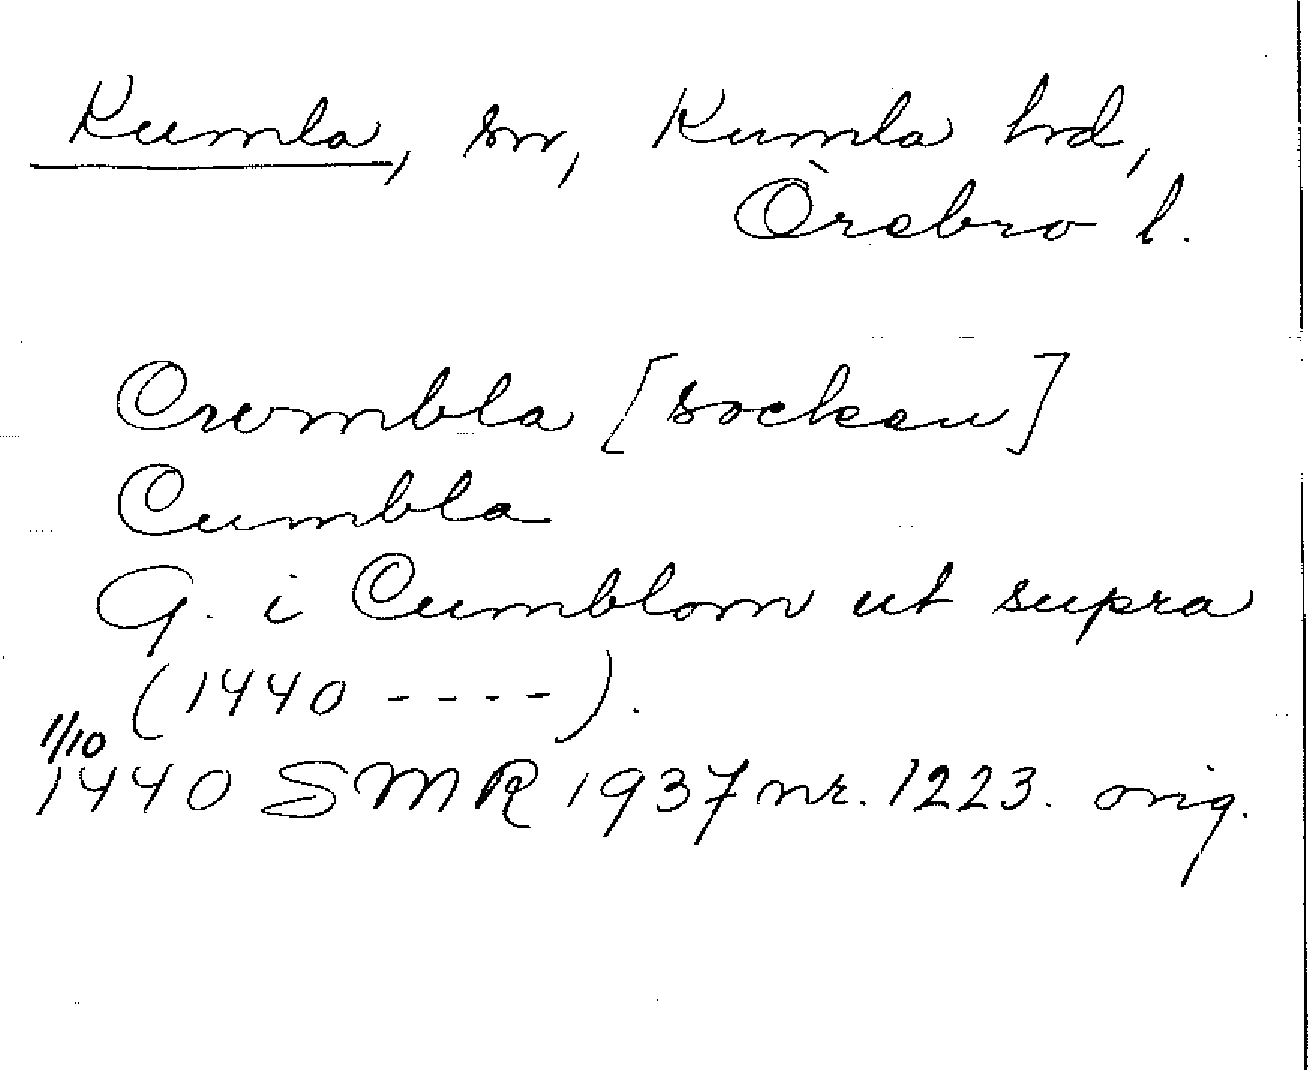 Kumla, sn, Kumla hd,
Örebro l.
Crumbla [socken]
Cumbla
G. i Cumblom ut supra
(1440 - - - -).
1/10
1440 SMR 1937 nr. 1223. orig.